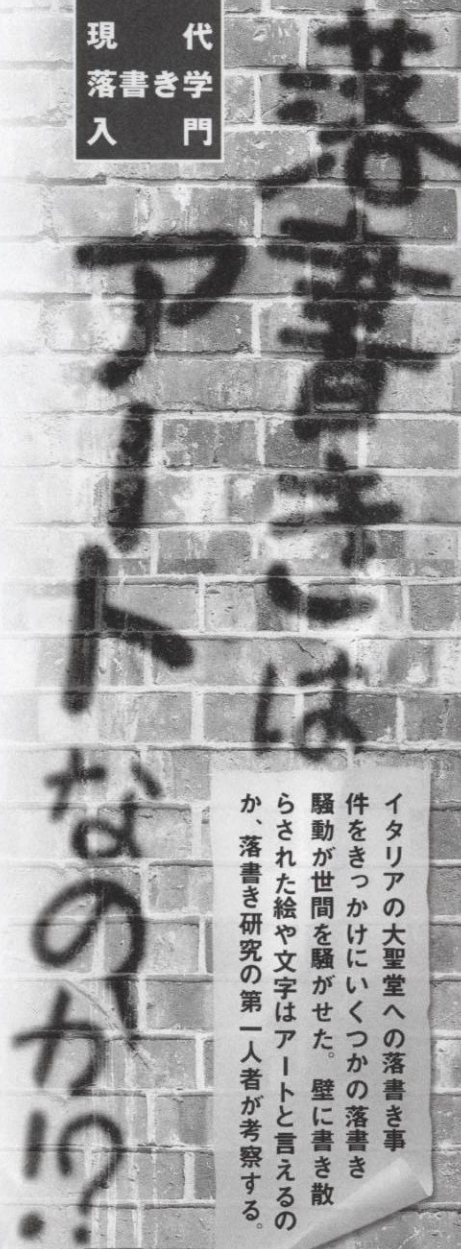 現代
落書き学
入門
落書きは
アートなのか!?
イタリアの大聖堂への落書き事
件をきっかけにいくつかの落書き
騒動が世間を騒がせた。壁に書き散
らされた絵や文字はアートと言えるの
か、落書き研究の第一人者が考察する。